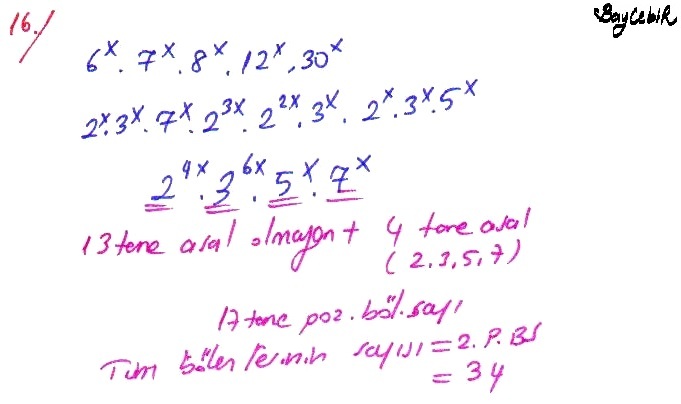 16.)
BayCebiR
6^x . 7^x . 8^x . 12^x . 30^x
2^x . 3^x . 7^x . 2^3x . 2^2x . 3^x . 2^x . 3^x . 5^x
2^4x . 3^6x . 5^x . 7^x
13 tane asal olmayan + 4 tane asal
(2,3,5,7)
17 tane poz. böl. sayı
Tüm bölenlerinin sayısı = 2. P. BS
= 34